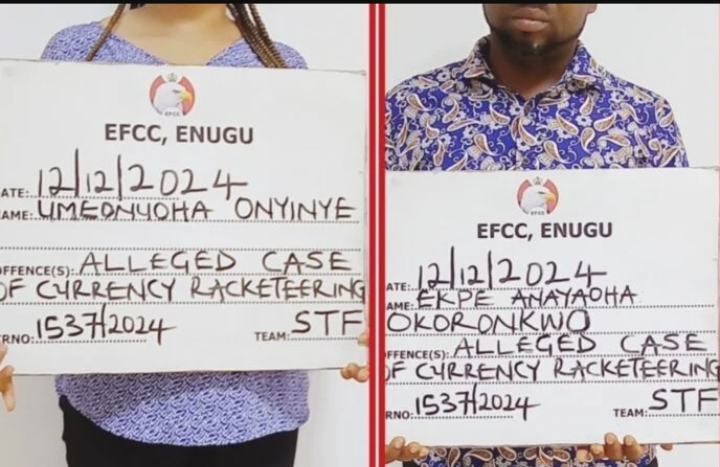 EFCC
EFCC, ENUGU
ATE: 12/12/2024
AME: UMEONYOHA ONYINYE
FFENCE(S): ALLEGED CASE
OF CURRENCY RACKETEERING
RNO: 1537/2024 TEAM: STF
EFCC
EFCC, ENUGU
ATE: 12/12/2024
AME: EKPE ANAYAOHA
OKORONKWO
FFENCE(S): ALLEGED CASE
OF CURRENCY RACKETEERING
RNO: 1537/2024 TEAM: STF